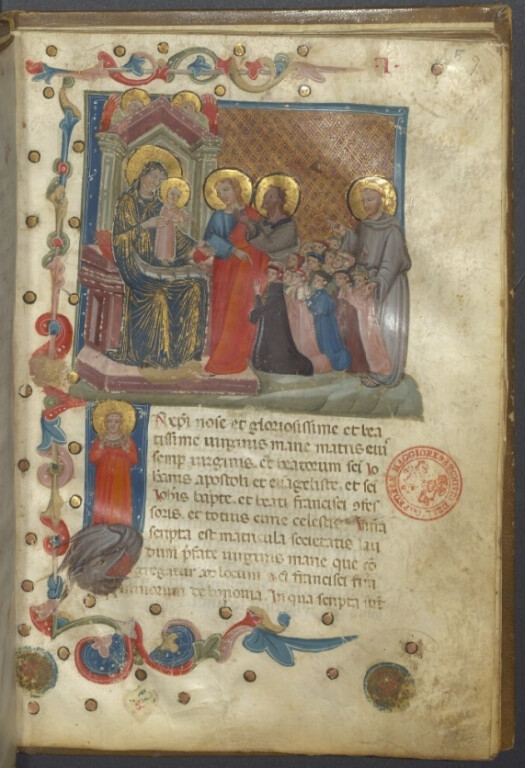 N xpi noie et gloriosissime et bea
tissime uirginis marie matris eius
semp uirginis. et beatorum sci io
hannis apostoli et euãgeliste. et sci
iohis bapte. et beati francisci 9fes
soris. et totius curie celestis
scripta est matricula societatis lau
dum pfate uirginis marie que cõ
gregatur ad locum sci francisci fra
minorum de bononia. In qua scripti sũt